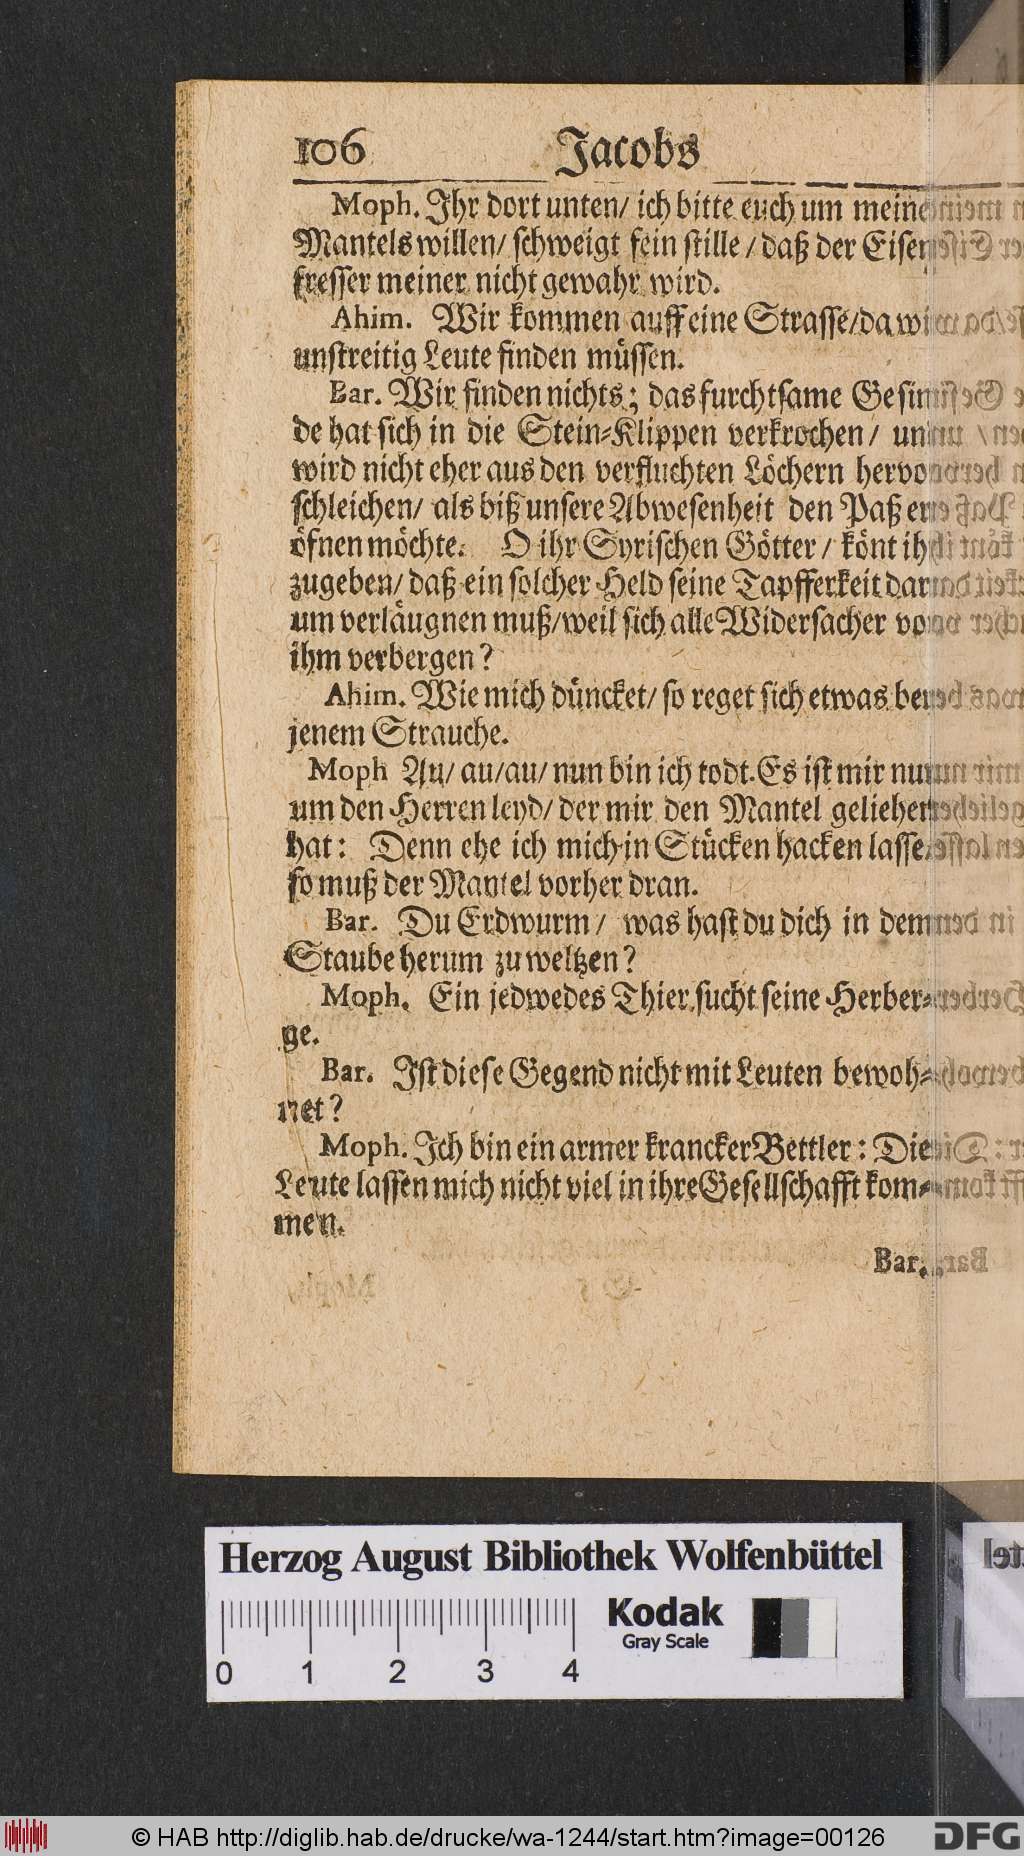 106 Jacobs
Moph. Ihr dort unten/ ich bitte euch um meines
Mantels willen/ schweigt fein stille / daß der Eisen
fresser meiner nicht gewahr wird.
Ahim. Wir kommen auff eine Strasse/da wir
unstreitig Leute finden müssen.
Bar. Wir finden nichts; das furchtsame Gesin
de hat sich in die Stein-Klippen verkrochen / und
wird nicht eher aus den verfluchten Löchern hervor
schleichen/ als biß unsere Abwesenheit den Paß er
öfnen möchte. O ihr Syrischen Götter / könt ihr
zugeben/ daß ein solcher Held seine Tapfferkeit dar
um verläugnen muß/weil sich alle Widersacher vor
ihm verbergen?
Ahim. Wie mich düncket/ so reget sich etwas bey
jenem Strauche.
Moph Au/ au/au/ nun bin ich todt. Es ist mir nur
um den Herren leyd/ der mir den Mantel geliehen
hat: Denn ehe ich mich in Stücken hacken lasse/
so muß der Mantel vorher dran.
Bar. Du Erdwurm / was hast du dich in dem
Staube herum zu weltzen?
Moph. Ein jedwedes Thier sucht seine Herber-
ge.
Bar. Ist diese Gegend nicht mit Leuten bewoh-
net?
Moph. Ich bin ein armer krancker Bettler: Die
Leute lassen mich nicht viel in ihre Gesellschafft kom-
men.
Bar.
Herzog August Bibliothek Wolfenbüttel
Kodak
Gray Scale
0 1 2 3 4
© HAB http://diglib.hab.de/drucke/wa-1244/start.htm?image=00126
DFG